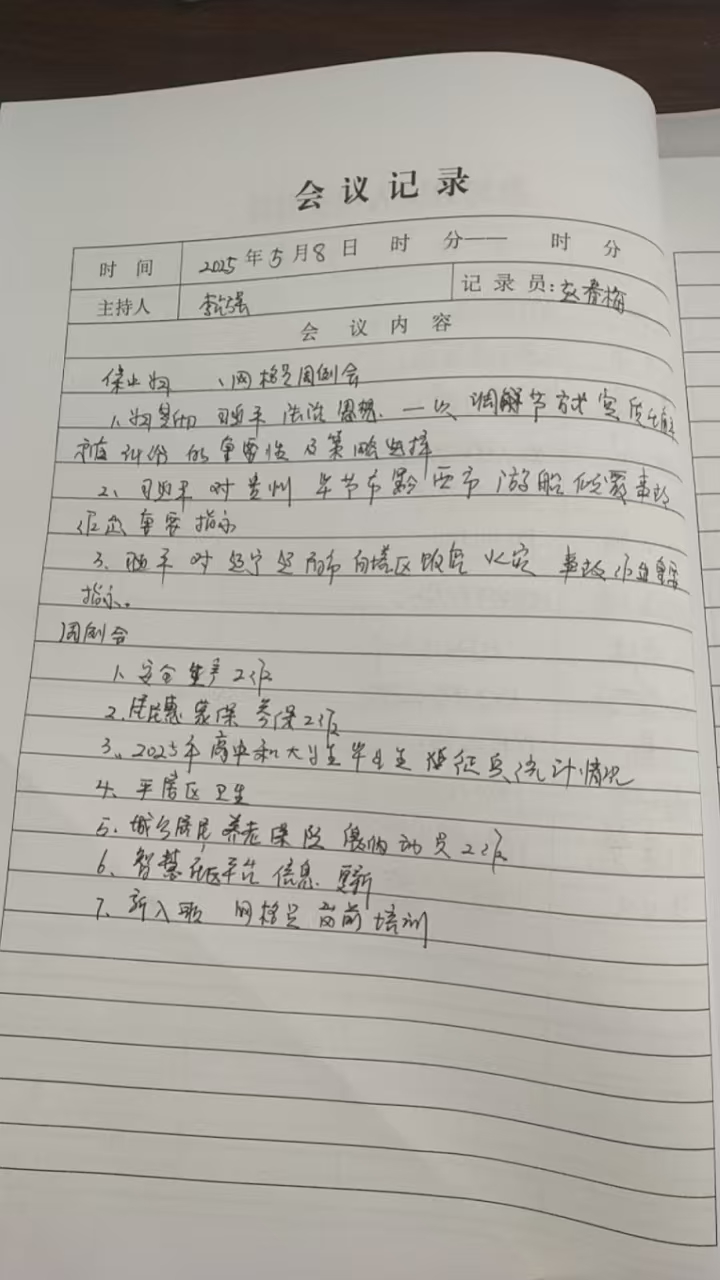 会议记录
时间 2025年5月8日 时 分—— 时 分
主持人 李 记录员:赵春梅
会议内容
、网格员周例会
1、 习近平法治思想、一次调解节方式实质化解
纠纷的重要性及策略选择
2、习近平对贵州毕节市黔西市游船倾覆事故
作出重要指示
3、习近平对辽宁辽阳市白塔区饭店火灾事故作出重要
指示。
周例会
1、安全生产工作
2、居民惠蒙保参保工作
3、2025年高中和大学生毕业生 征兵统计情况
4、平房区卫生
5、城乡居民养老保险缴纳动员工作
6、智慧社区平台信息更新
7、新入职网格员岗前培训